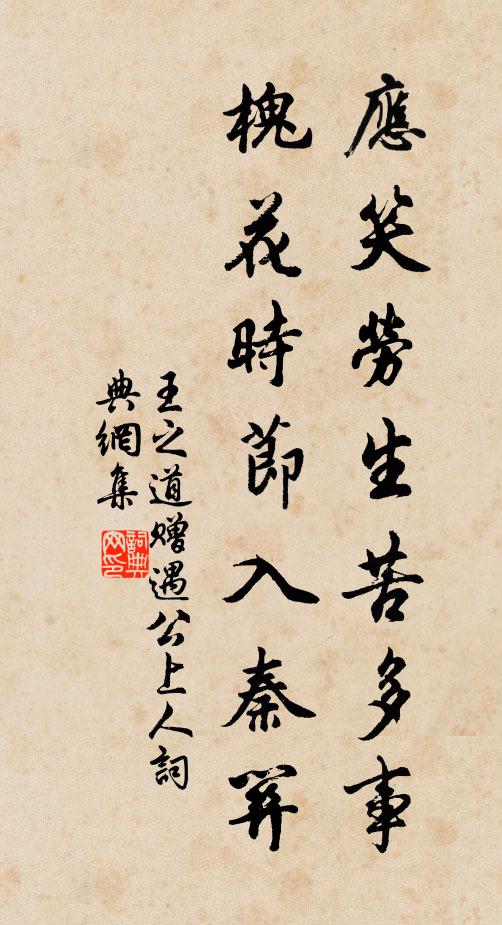 應笑勞生苦多事
槐花時節入秦關
王之道贈遇公上人詞
典網集
詞典
网印